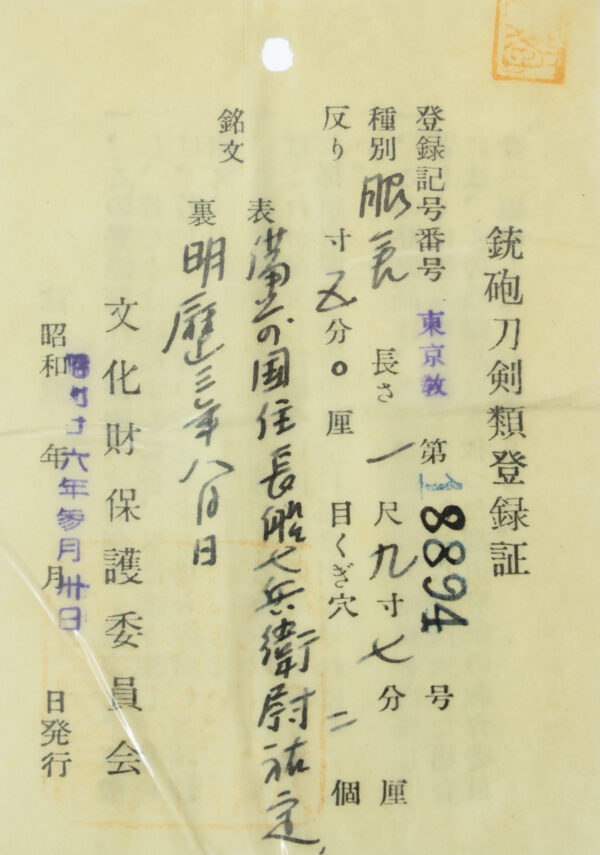 銃砲刀剣類登録証
登録記号番号 東京教 第18894号
種別 脇差 長さ 一尺九寸七分 厘
反り 寸五分0厘 目くぎ穴 二個
銘文 表 備前の国住長船七兵衛尉祐定
裏 明暦三年八月日
文化財保護委員会
昭和 年 月 日発行
昭和廿六年参月卅日